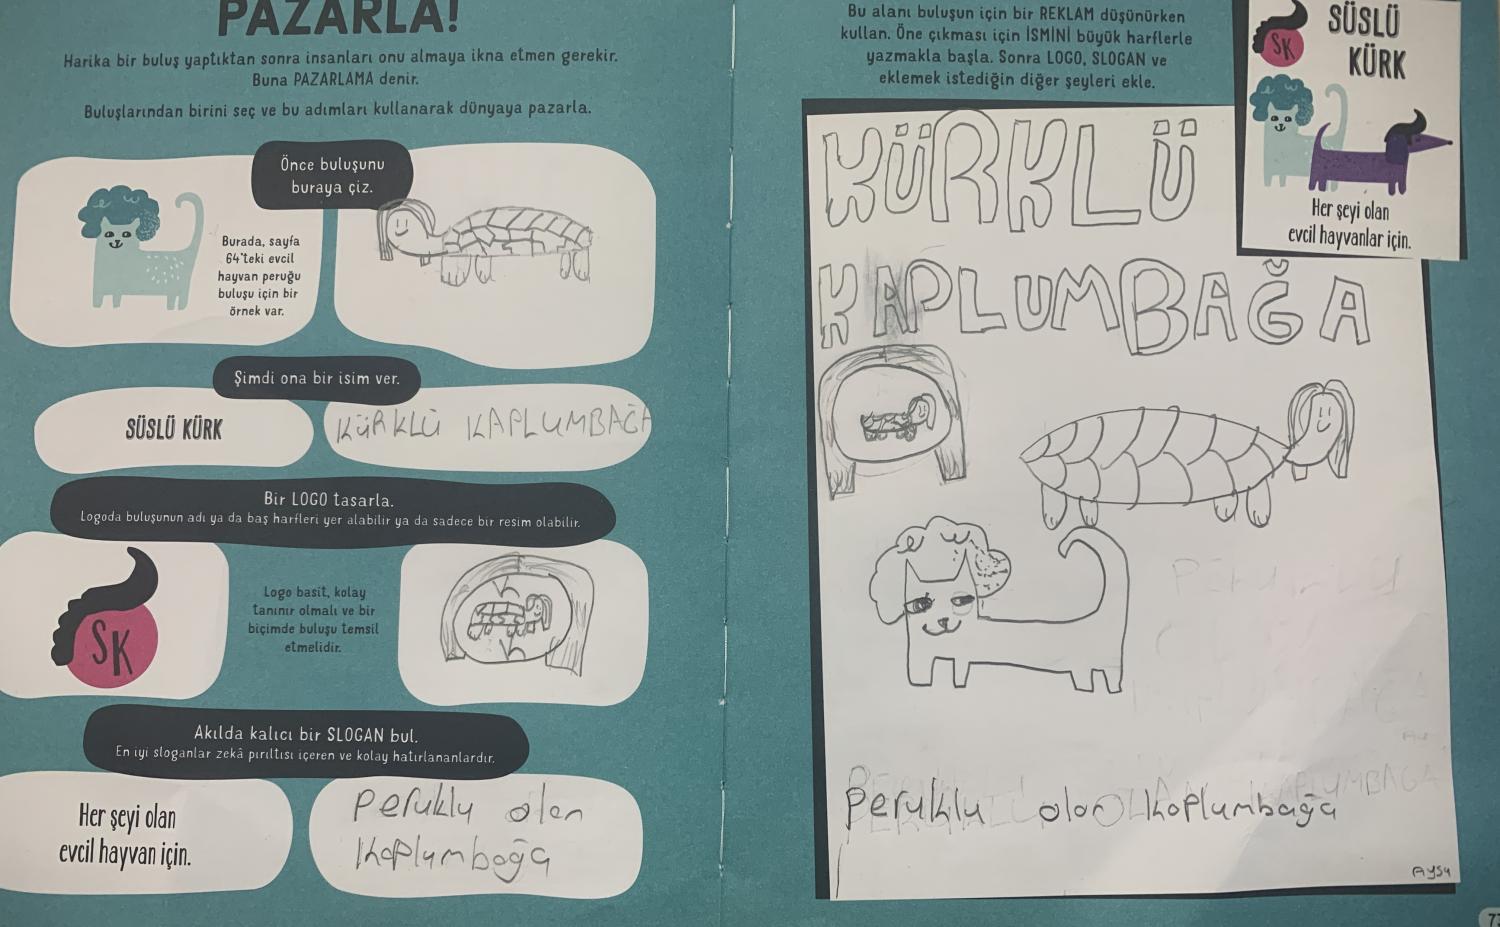 PAZARLA!
Harika bir buluş yaptıktan sonra insanları onu almaya ikna etmen gerekir.
Buna PAZARLAMA denir.
Buluşlarından birini seç ve bu adımları kullanarak dünyaya pazarla.
Önce buluşunu
buraya çiz.
Burada, sayfa
64'teki evcil
hayvan peruğu
buluşu için bir
örnek var.
Şimdi ona bir isim ver.
SÜSLÜ KÜRK
KÜRKLÜ KAPLUMBAĞA
Bir LOGO tasarla.
Logoda buluşunun adı ya da baş harfleri yer alabilir ya da sadece bir resim olabilir.
SK
Logo basit, kolay
tanınır olmalı ve bir
biçimde buluşu temsil
etmelidir.
Akılda kalıcı bir SLOGAN bul.
En iyi sloganlar zekâ pırıltısı içeren ve kolay hatırlananlardır.
Her şeyi olan
evcil hayvan için.
Peruklu olan
kaplumbağa
Bu alanı buluşun için bir REKLAM düşünürken
kullan. Öne çıkması için İSMİNİ büyük harflerle
yazmakla başla. Sonra LOGO, SLOGAN ve
eklemek istediğin diğer şeyleri ekle.
SK
SÜSLÜ
KÜRK
Her şeyi olan
evcil hayvanlar için.
KÜRKLÜ
KAPLUMBAĞA
Peruklu olan kaplumbağa